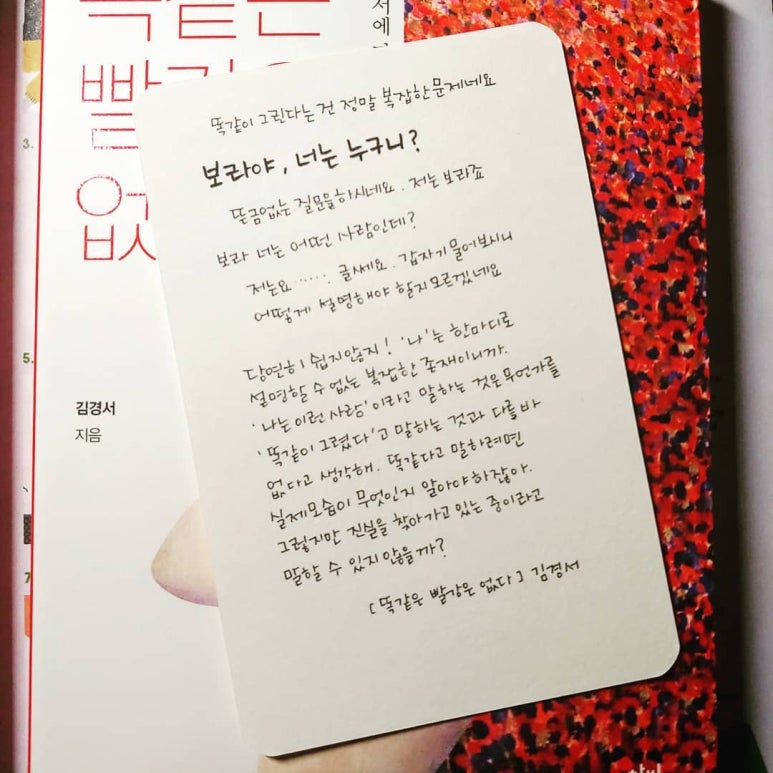 똑같은
빨강은
없
서에
김경서
지음
3.
5.
7
똑같이 그린다는 건 정말 복잡한 문제네요
보라야, 너는 누구니?
뜬금없는 질문을 하시네요. 저는 보라죠
보라 너는 어떤 사람인데?
저는요...... 글쎄요. 갑자기 물어보시니
어떻게 설명해야 할지 모르겠네요
당연히 쉽지 않지! '나'는 한마디로
설명할 수 없는 복잡한 존재이니까.
'나는 이런 사람'이라고 말하는 것은 무언가를
'똑같이 그렸다'고 말하는 것과 다를 바
없다고 생각해. 똑같다고 말하려면
실제모습이 무엇인지 알아야 하잖아.
그렇지만 진실을 찾아가고 있는 중이라고
말할 수 있지 않을까?
[똑같은 빨강은 없다] 김경서